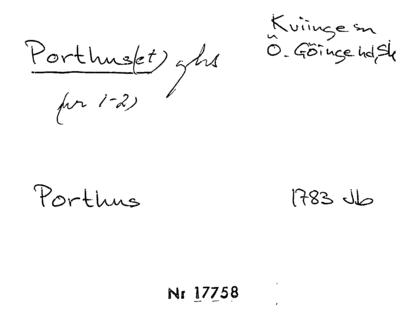 Porthus(et) ghs
(nr 1-2)
Kviinge sn
Ö. Göinge hd, Sk
Porthus
1783 Jb
Nr 17758